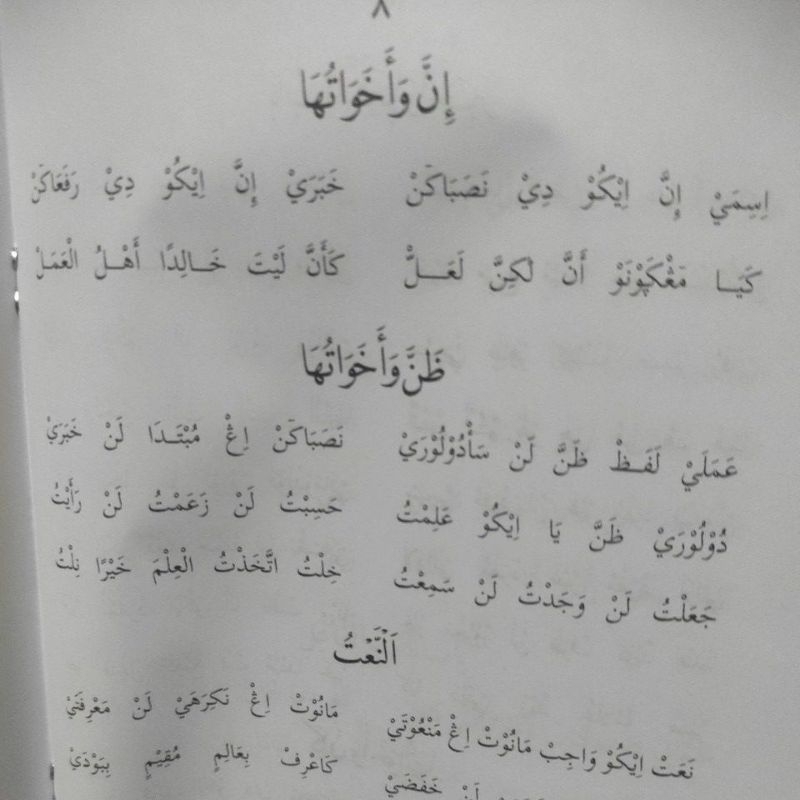 ٨
إِنَّ وَأَخَوَاتُهَا
اِسِمَيْ إِنَّ اِيْكُوْ دِيْ نَصَبَاكَنْ خَبَرَيْ إِنَّ اِيْكُوْ دِيْ رَفَعَاكَنْ
كَيَـا مَڠْكَوْنَوْ أَنَّ لٰكِنَّ لَعَـلَّ كَأَنَّ لَيْتَ خَـالِدًا أَهْـلُ الْعَمَلْ
ظَنَّ وَأَخَوَاتُهَا
عَمَلَيْ لَفَـظْ ظَنَّ لَنْ سَأْدُوْلُوْرَيْ نَصَبَاكَنْ اِڠْ مُبْتَـدَا لَنْ خَبَرَيْ
دُوْلُوْرَيْ ظَنَّ يَا اِيْكُوْ عَلِمْتُ حَسِبْتُ لَنْ زَعَمْتُ لَنْ رَأَيْتُ
جَعَلْتُ لَنْ وَجَدْتُ لَنْ سَمِعْتُ خِلْتُ اتَّخَذْتُ الْعِلْمَ خَيْرًا نِلْتُ
اَلنَّعْتُ
نَعَتْ اِيْكُوْ وَاجِبْ مَانُوْتْ اِڠْ مَنْعُوْتَيْ مَانُوْتْ اِڠْ نَكِرَهَيْ لَنْ مَعْرِفَتَيْ
لَنْ خَفَضَيْ كَاعْرِفْ بِعَالِمٍ مُقِيْمٍ بِبَوْدَيْ